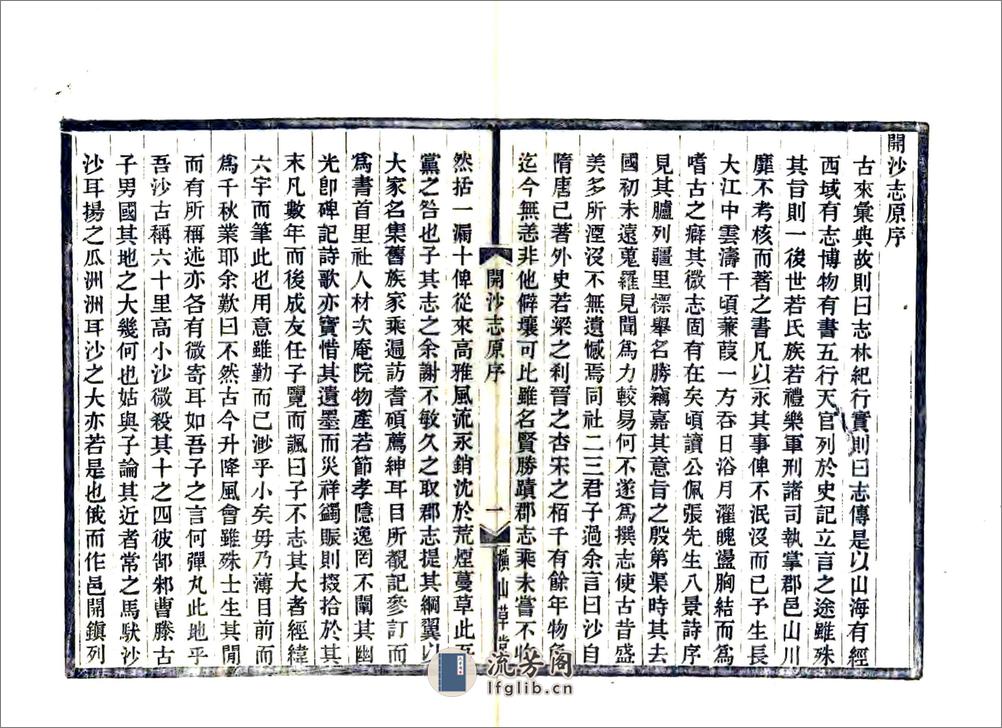 開沙志原序
古來彙典故則曰志林紀行實則曰志傳是以山海有經
西域有志博物有書五行天官列於史記立言之途雖殊
其旨則一後世若氏族若禮樂軍刑諸司執掌郡邑山川
靡不考核而著之書凡以永其事俾不泯沒而已予生長
大江中雲濤千頃蒹葭一方吞日浴月濯魄盪胸結而為
嗜古之癖其微志固有在矣頃讀公佩張先生八景詩序
見其臚列疆里標舉名勝竊嘉其意旨之殷第渠時其去
國初未遠蒐羅見聞為力較易何不遂為撰志使古昔盛
美多所湮沒不無遺憾焉同社二三君子過余言曰沙自
隋唐已著外史若梁之利晉之杏宋之栢千有餘年物色
迄今無恙非他僻壤可比雖名賢勝蹟郡志乘未嘗不收
然括一漏十俾從來高雅風流汞銷沈於荒煙蔓草此吾
黨之咎也子其志之余謝不敏久之取郡志提其綱翼以
大家名集舊族家乘遍訪耆碩薦紳耳目所覩記參訂而
為書首里社人材次庵院物產若節孝隱逸罔不闡其幽
光即碑記詩歌亦寶惜其遺墨而災祥蠲賑則掇拾於其
末凡數年而後成友任子覽而諷曰子不志其大者經緯
六字而筆此也用意雖勤而已渺乎小矣毋乃薄目前而
為千秋業耶余歎曰不然古今升降風會雖殊士生其間
而有所稱述亦各有微寄耳如吾子之言何彈丸此地乎
吾沙古稱六十里高小沙微殺其十之四彼郜邾曹滕古
子男國其地之大幾何也姑與子論其近者常之馬馱沙
沙耳揚之瓜洲洲耳沙之大亦若是也俄而作邑開鎮列
開沙志原序
一
橫山草堂
流芳阁
lfglib.cn